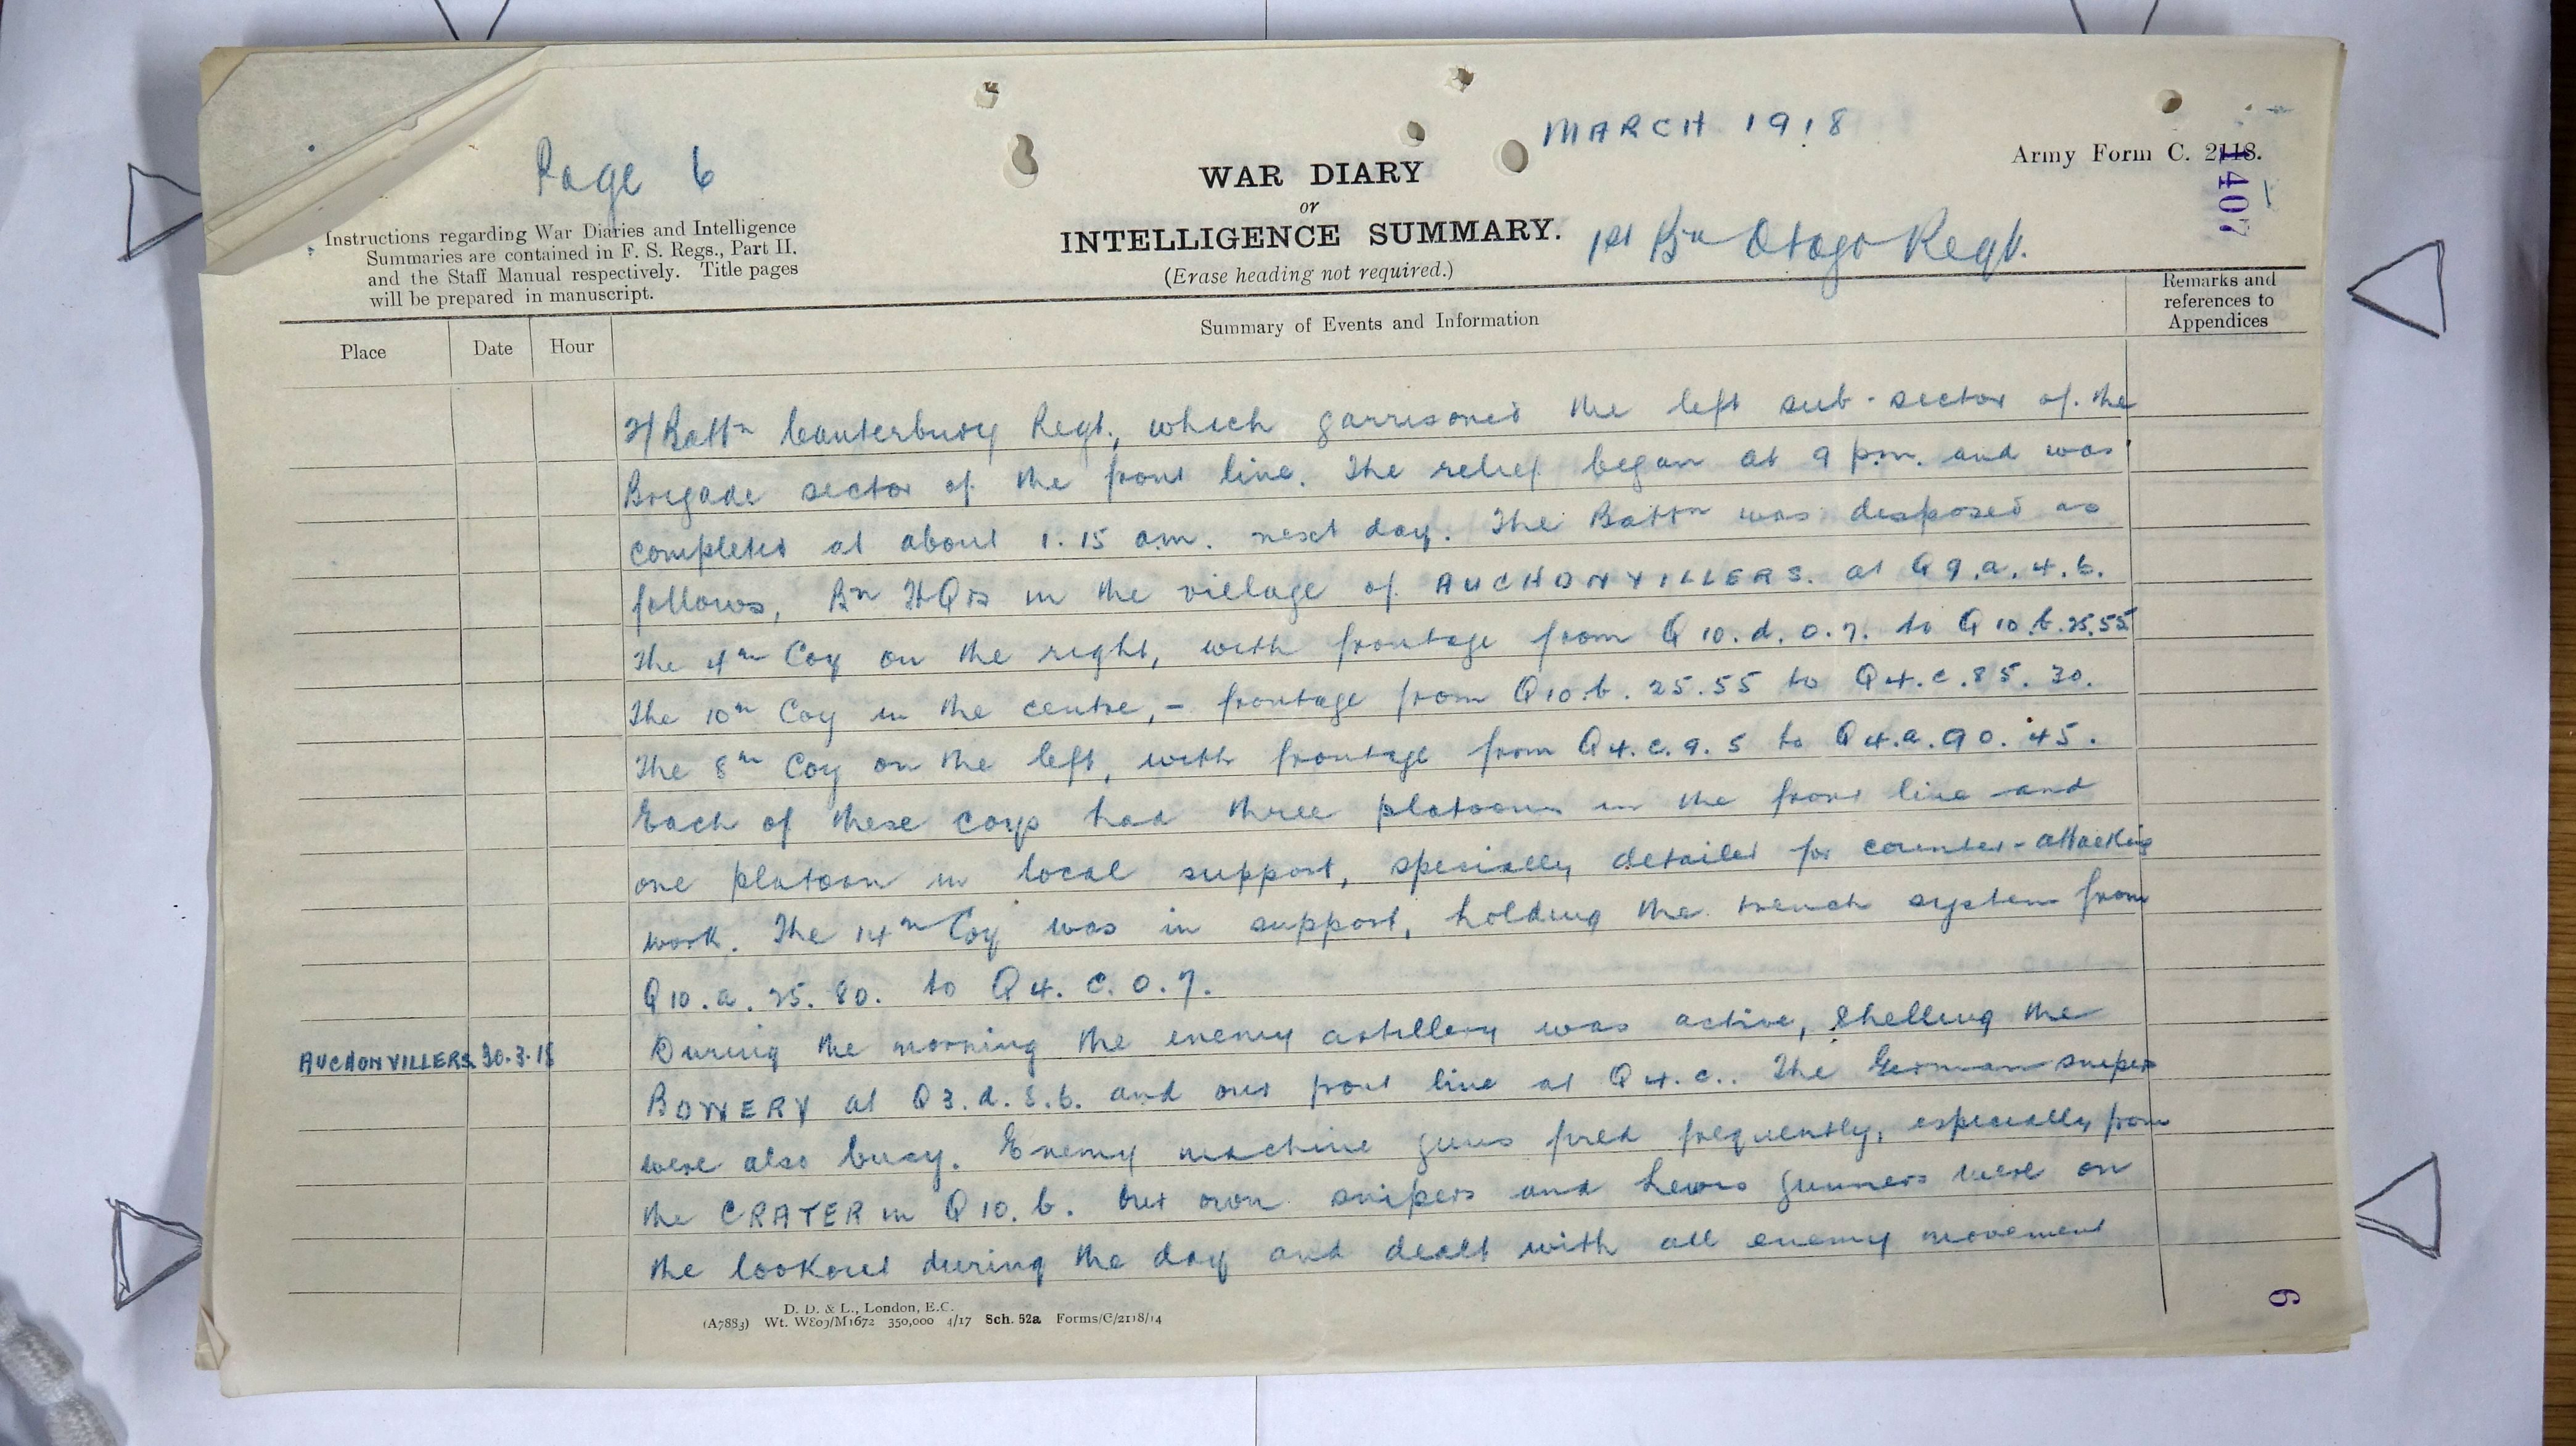 Page 6
MARCH 1918
Army Form C. 2118.
1407
WAR DIARY
or
INTELLIGENCE SUMMARY.
1st Bn Otago Regt.
(Erase heading not required.)
Instructions regarding War Diaries and Intelligence
Summaries are contained in F. S. Regs., Part II.
and the Staff Manual respectively. Title pages
will be prepared in manuscript.
Place
Date
Hour
Summary of Events and Information
Remarks and
references to
Appendices
Battn Canterbury Regt., which garrisoned the left sub-sector of the
Brigade sector of the front line. The relief began at 9 p.m. and was
completed at about 1.15 a.m. next day. The Battn was disposed as
follows, Bn HQrs in the village of AUCHONVILLERS. at Q9.a.4.6.
The 4th Coy on the right, with frontage from Q10.d.0.7. to Q10.b.25.55
The 10th Coy in the centre, - frontage from Q10.b.25.55 to Q4.c.85.30.
The 8th Coy on the left, with frontage from Q4.c.9.5 to Q4.a.90.45.
Each of these coys had three platoons in the front line and
one platoon in local support, specially detailed for counter-attacking
work. The 14th Coy was in support, holding the trench system from
Q10.a.25.80. to Q4.c.0.7.
AUCHONVILLERS 30.3.18 During the morning the enemy artillery was active, shelling the
BOWERY at Q3.d.8.6. and our front line at Q4.c.. The German snipers
were also busy. Enemy machine guns fired frequently, especially from
the CRATER in Q10.b. Our own snipers and Lewis gunners were on
the lookout during the day and dealt with all enemy movement
D. D. & L., London, E.C.
(A7883) Wt. W809/M1672 350,000 4/17 Sch. 52a Forms/C/2118/14
6